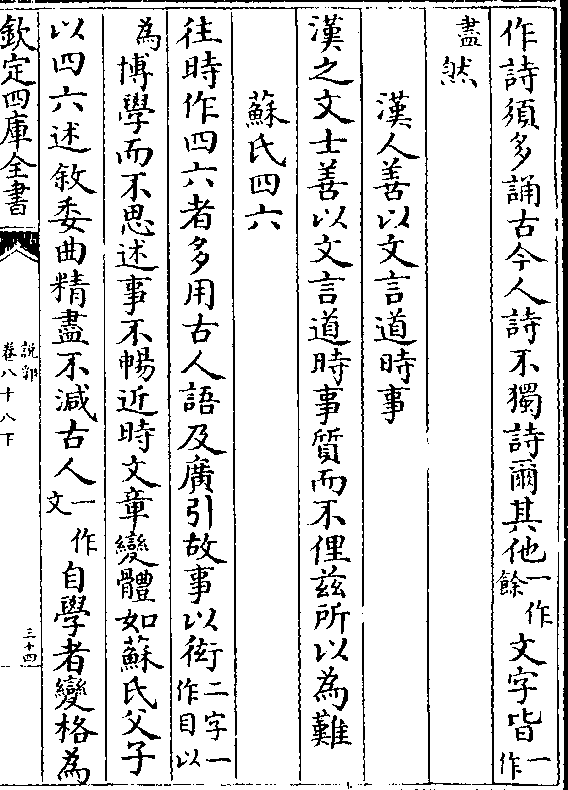 作詩須多誦古今人詩不獨詩爾其他一作餘文字皆一作
盡然
漢人善以文言道時事
漢之文士善以文言道時事質而不俚茲所以為難
蘇氏四六
往時作四六者多用古人語及廣引故事以衒二字一作目以
為博學而不思述事不暢近時文章變體如蘇氏父子
以四六述敘委曲精盡不減古人一作文自學者變格為
欽定四庫全書
說郛
卷八十八下
三十四